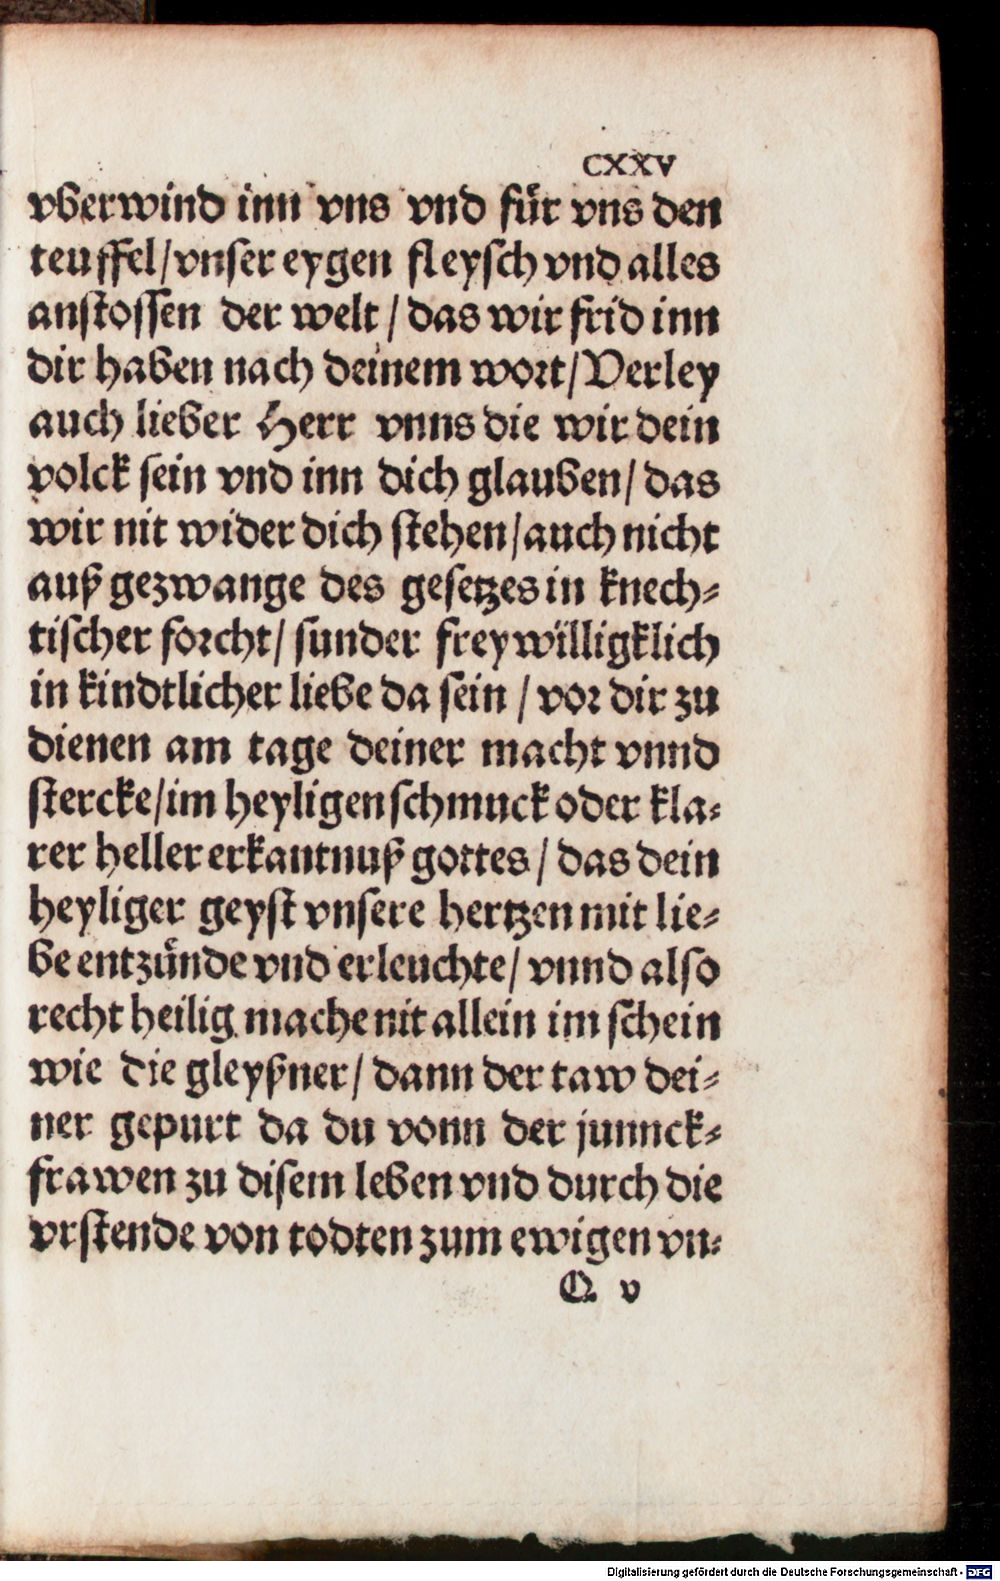 CXXV
vberwind inn vns vnd für vns den
teuffel/vnser eygen fleysch vnd alles
anstossen der welt / das wir frid inn
dir haben nach deinem wort/Verley
auch lieber Herr vnns die wir dein
volck sein vnd inn dich glauben/ das
wir nit wider dich stehen/auch nicht
auß gezwange des gesetzes in knech⸗
tischer forcht/ sunder freywilligklich
in kindtlicher liebe da sein / vor dir zu
dienen am tage deiner macht vnnd
stercke/im heyligen schmuck oder kla⸗
rer heller erkantnuß gottes / das dein
heyliger geyst vnsere hertzen mit lie⸗
be entzünde vnd erleuchte/ vnnd also
recht heilig mache nit allein im schein
wie die gleyßner/ dann der taw dei⸗
ner gepurt da du vonn der junnck⸗
frawen zu disem leben vnd durch die
vrstende von todten zum ewigen vn⸗
Q v
Digitalisierung gefördert durch die Deutsche Forschungsgemeinschaft - DFG